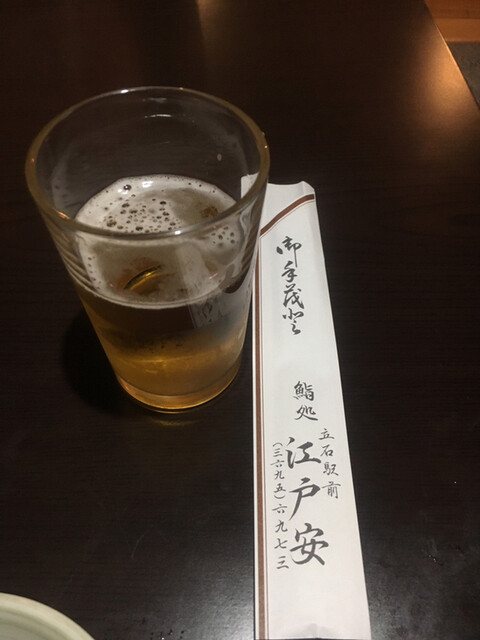 御手茂登
鮨処
立石駅前
江戸安
(三六九五)六九七三